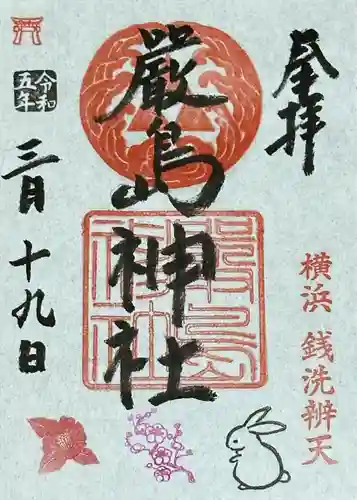 奉拝
横浜 銭洗辨天
厳島神社
令和
五年
三月
十九日